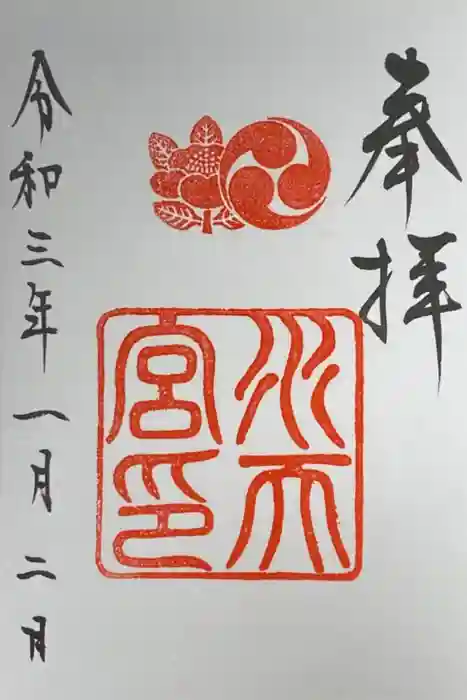 奉拝
水天宮印
令和三年一月二日